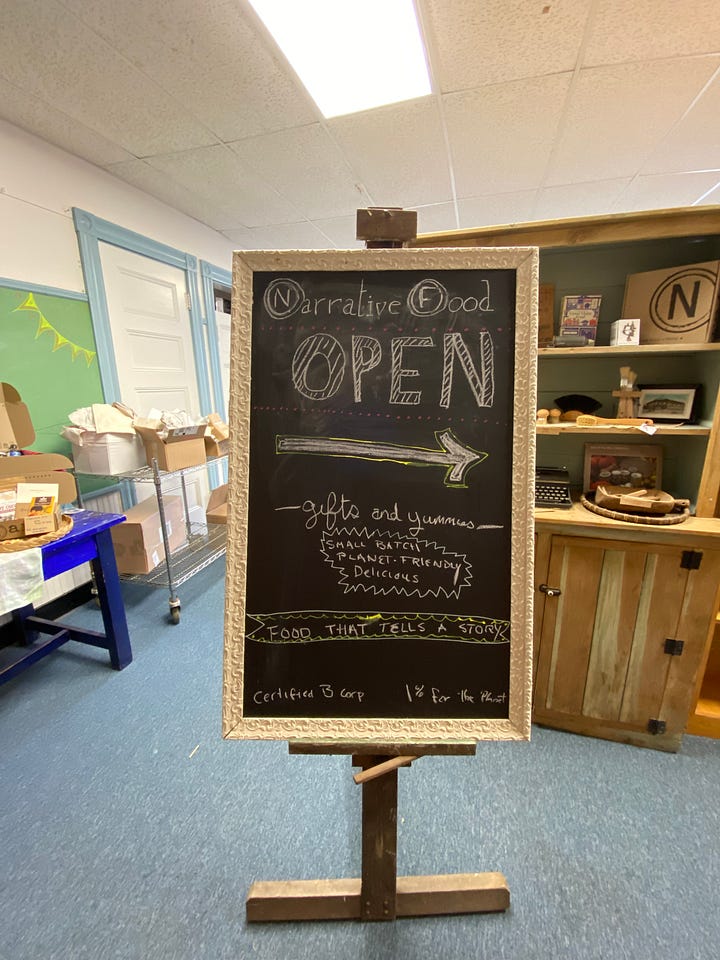 Narrative Food
OPEN
gifts and yummies
SMALL BATCH
PLANET-FRIENDLY
Delicious
FOOD THAT TELLS A STORY
Certified B Corp
1% for the Planet
N